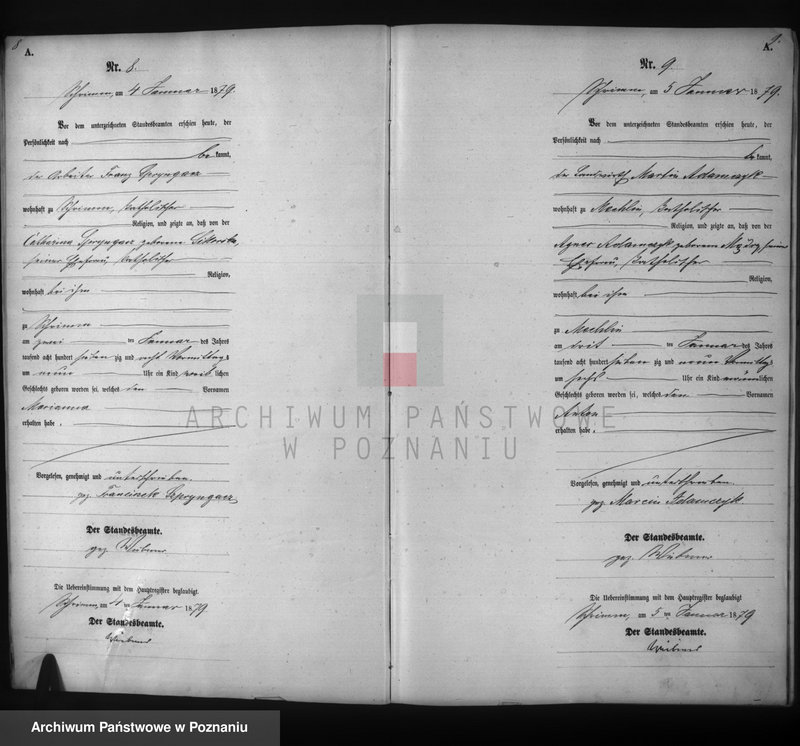 8
A.
Nr. 8.
Schrimm, am 4 Januar 1879.
Vor dem unterzeichneten Standesbeamten erschien heute, der
Persönlichkeit nach
bekannt,
der Arbeiter Franz Spryngacz
wohnhaft zu Schrimm, katholischer
Religion, und zeigte an, daß von der
Catharina Spryngacz geborenen
seiner Ehefrau, katholischer
Religion,
wohnhaft bei ihm
zu Schrimm
am zwei ten Januar des Jahres
tausend acht hundert sieben zig und Vormittags
um neun Uhr ein Kind weiblichen
Geschlechts geboren worden sei, welches den Vornamen
Marianna
erhalten habe.
Vorgelesen, genehmigt und unterschrieben
gez. Franciszek Szpryngacz
Der Standesbeamte.
gez.
Die Uebereinstimmung mit dem Hauptregister beglaubigt
Schrimm, am 4 ten Januar 1879
Der Standesbeamte.
9.
A.
Nr. 9.
Schrimm, am 5 Januar 1879.
Vor dem unterzeichneten Standesbeamten erschien heute, der
Persönlichkeit nach
bekannt,
der Landwirth Martin Adamczyk
wohnhaft zu Mechlin, katholischer
Religion, und zeigte an, daß von der
Agnes Adamczyk geborenen seiner
Ehefrau, katholischer
Religion,
wohnhaft bei ihm
zu Mechlin
am drit ten Januar des Jahres
tausend acht hundert sieben zig und neun Vormittags
um sechs Uhr ein Kind männlichen
Geschlechts geboren worden sei, welches den Vornamen
Anton
erhalten habe.
Vorgelesen, genehmigt und unterschrieben
gez. Marcin Adamczyk
Der Standesbeamte.
gez.
Die Uebereinstimmung mit dem Hauptregister beglaubigt
Schrimm, am 5 ten Januar 1879
Der Standesbeamte.
ARCHIWUM PAŃSTWOWE
W POZNANIU
Archiwum Państwowe w Poznaniu